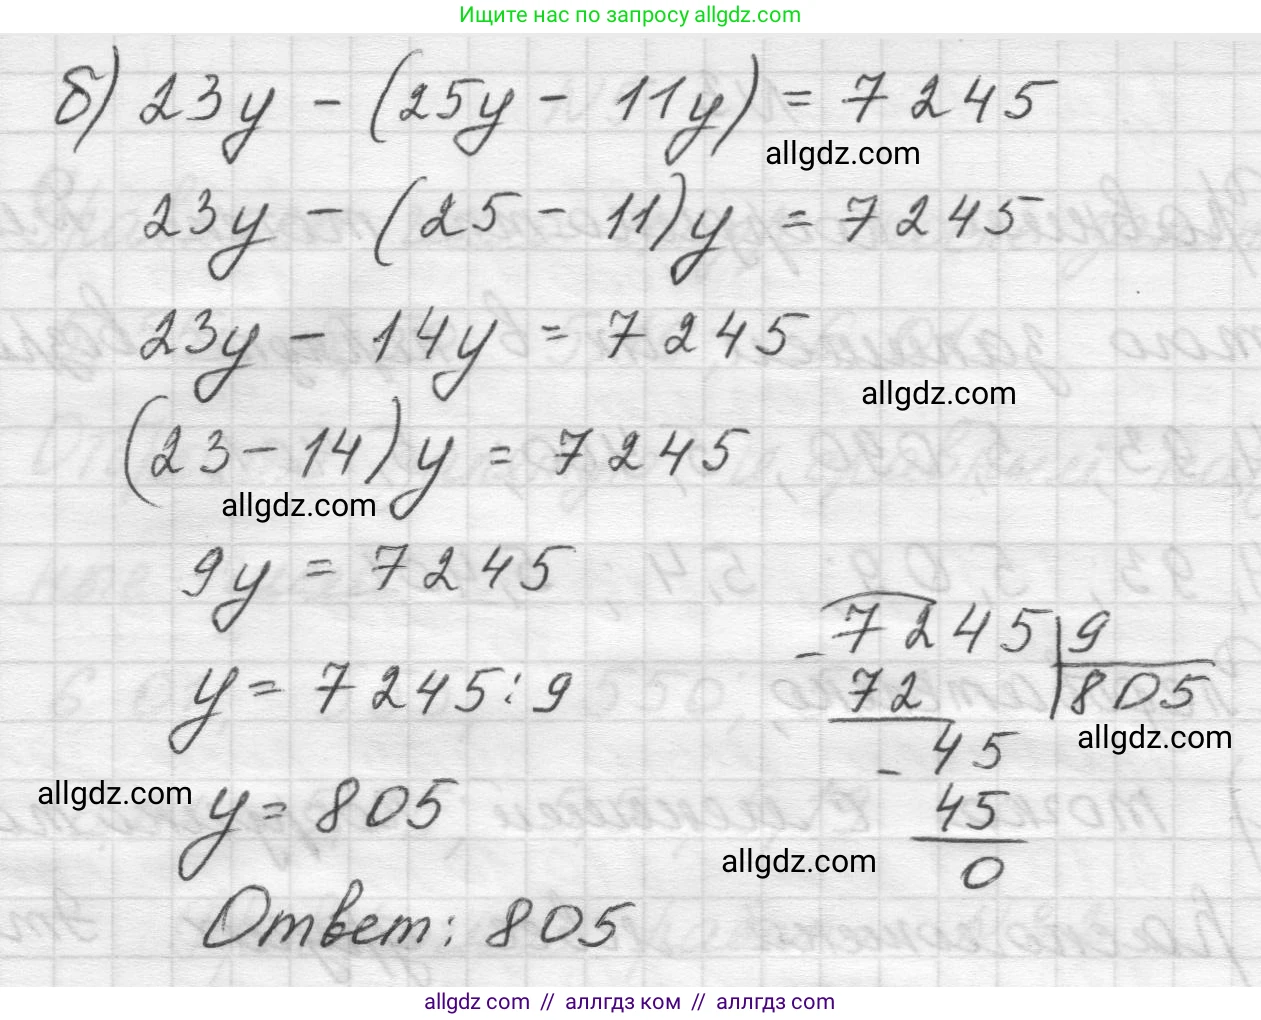 Ищите нас по запросу allgdz.com
б) 23y - (25y - 11y) = 7245
allgdz.com
23y - (25 - 11)y = 7245
23y - 14y = 7245
allgdz.com
(23 - 14)y = 7245
allgdz.com
9y = 7245
y = 7245 : 9
allgdz.com
y = 805
Ответ: 805
- 7245 | 9
72 | 805
allgdz.com
- 45
45
allgdz.com
0
allgdz.com // аллгдз ком // аллгдз.com